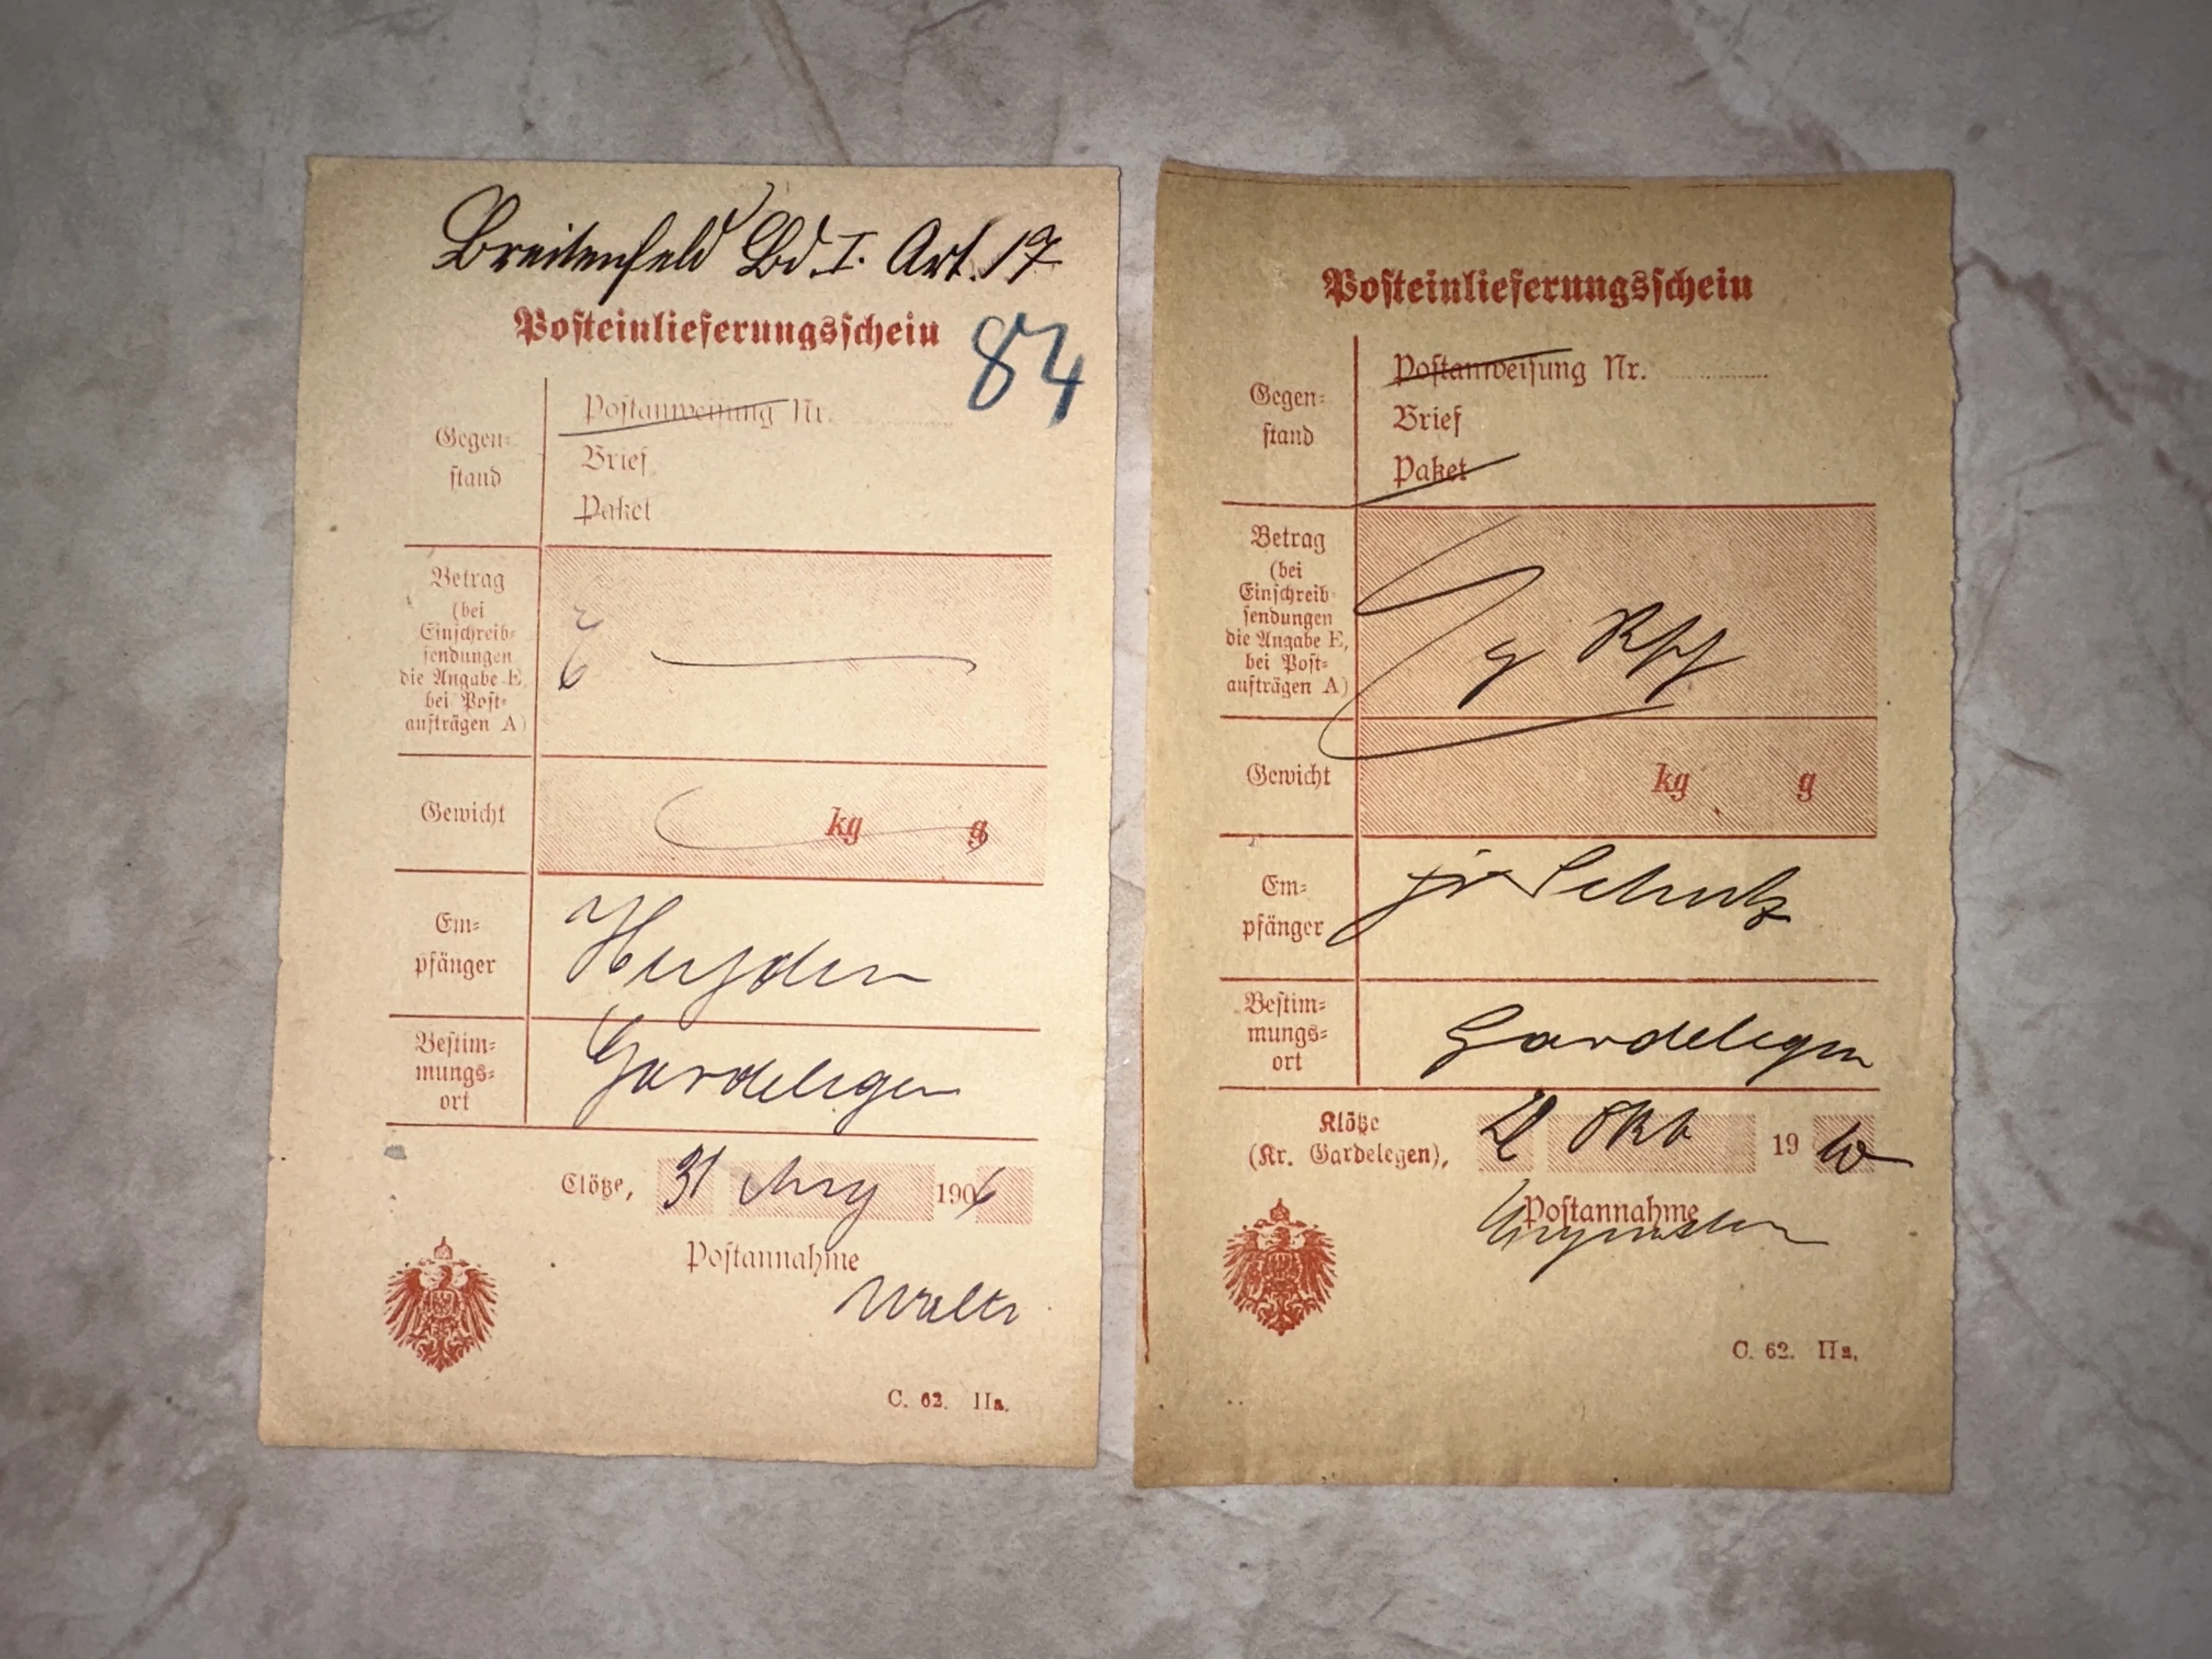 Breitenfeld Bd. I. Art. 17
Posteinlieferungsschein
84
Gegen-
stand
Postanweisung Nr.
Brief
Paket
Betrag
(bei
Einschreib-
sendungen
die Angabe E,
bei Post-
aufträgen A)
E
Gewicht
kg g
Em-
pfänger
Bestim-
mungs-
ort
Gardelegen
Clötze, 31 1906
Postannahme
C. 62. IIa.
Posteinlieferungsschein
Gegen-
stand
Postanweisung Nr.
Brief
Paket
Betrag
(bei
Einschreib-
sendungen
die Angabe E,
bei Post-
aufträgen A)
Gewicht
kg g
Em-
pfänger
Schulz
Bestim-
mungs-
ort
Gardelegen
Klötze
(Kr. Gardelegen), Okt 19 10
Postannahme
C. 62. IIa.